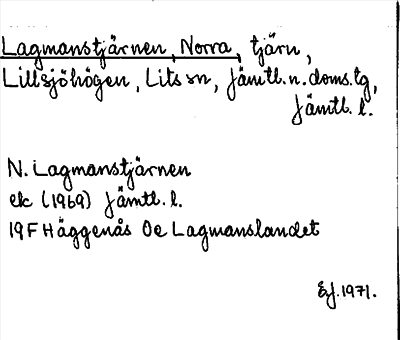 Lagmanstjärnen, Norra, tjärn,
Lillsjöhögen, Lits sn, Jämtl. n. doms. tg,
Jämtl. l.
N. Lagmanstjärnen
ek (1969) Jämtl. l.
19F Häggenås Oe Lagmanslandet
1971.